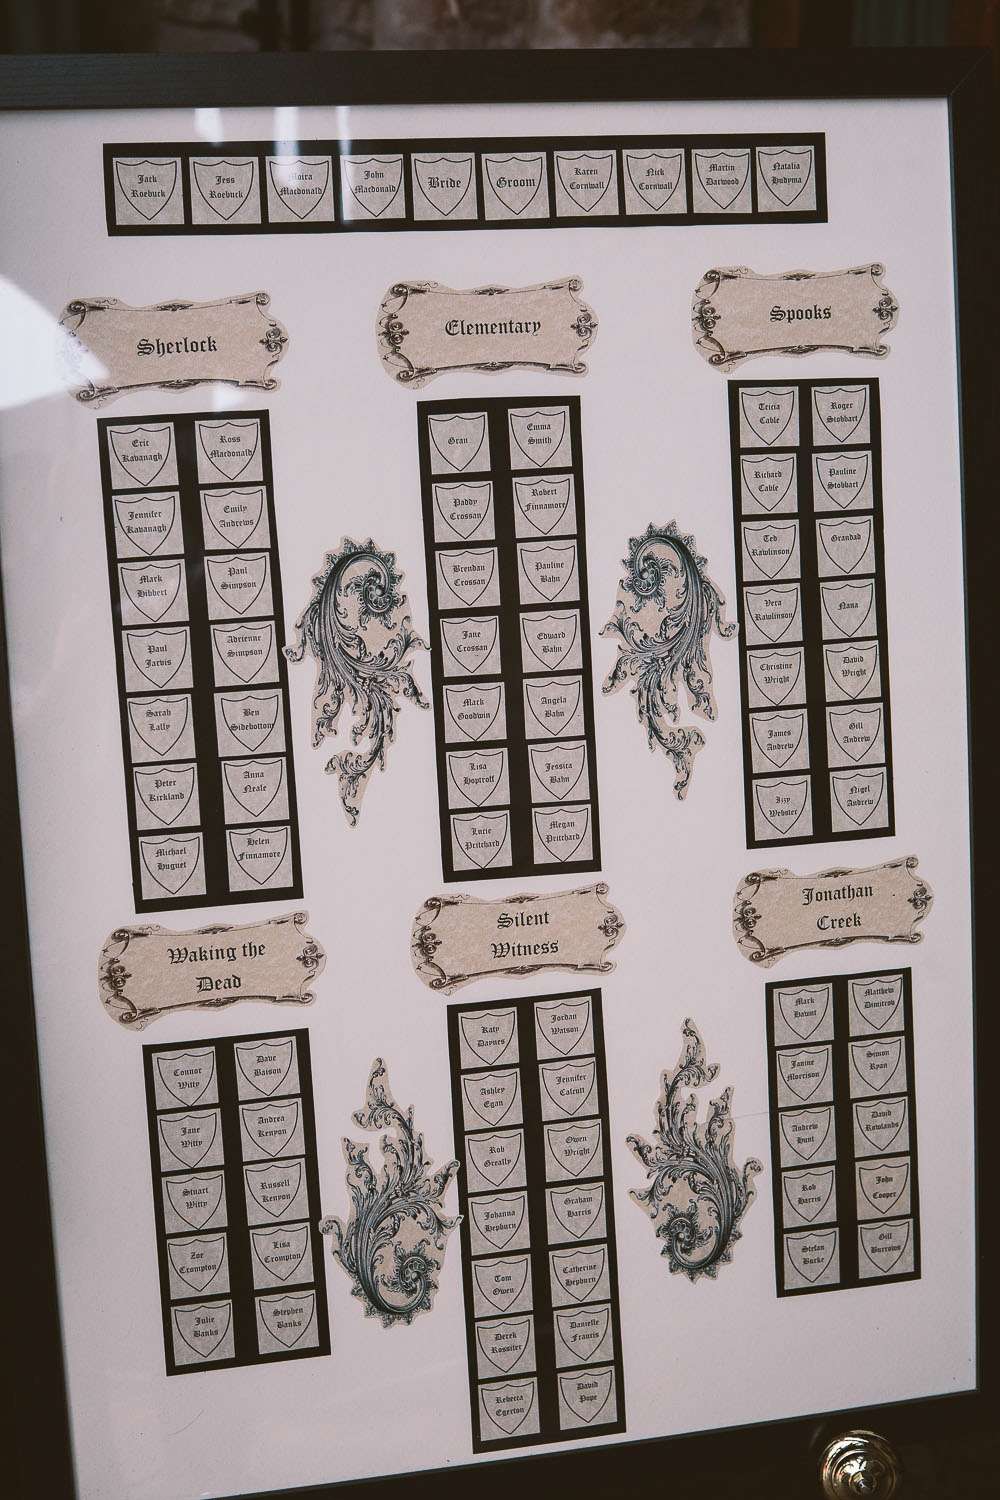 Jack
Roebuck
Jess
Roebuck
Moira
Macdonald
John
Macdonald
Bride
Groom
Karen
Cornwall
Nick
Cornwall
Martin
Darwood
Natalia
Hudyma
Sherlock
Eric
Kavanagh
Ross
Macdonald
Jennifer
Kavanagh
Emily
Andrews
Mark
Hibbert
Paul
Simpson
Paul
Jarvis
Adrienne
Simpson
Sarah
Lally
Ben
Sidebottom
Peter
Kirkland
Anna
Neale
Michael
Huguet
Helen
Finnamore
Elementary
Gran
Emma
Smith
Paddy
Crossan
Robert
Finnamore
Brendan
Crossan
Pauline
Bahn
Jane
Crossan
Edward
Bahn
Mark
Goodwin
Angela
Bahn
Lisa
Hoptroff
Jessica
Bahn
Lucie
Pritchard
Megan
Pritchard
Spooks
Tricia
Cable
Roger
Stobbart
Richard
Cable
Pauline
Stobbart
Ted
Rawlinson
Grandad
Vera
Rawlinson
Nana
Christine
Wright
David
Wright
James
Andrew
Gill
Andrew
Izzy
Webster
Nigel
Andrew
Waking the
Dead
Connor
Witty
Dave
Baison
Jane
Witty
Andrea
Kenyon
Stuart
Witty
Russell
Kenyon
Zoe
Crompton
Lisa
Crompton
Julie
Banks
Stephen
Banks
Silent
Witness
Katy
Daynes
Jordan
Watson
Ashley
Egan
Jennifer
Calcutt
Rob
Greally
Owen
Wright
Johanna
Hepburn
Graham
Harris
Tom
Owen
Catherine
Hepburn
Derek
Rossiter
Danielle
Francis
Rebecca
Egerton
David
Pope
Jonathan
Creek
Mark
Haunt
Matthew
Dimitrov
Janine
Morrison
Simon
Ryan
Andrew
Hunt
David
Rowlands
Rob
Harris
John
Cooper
Stefan
Burke
Gill
Burrows